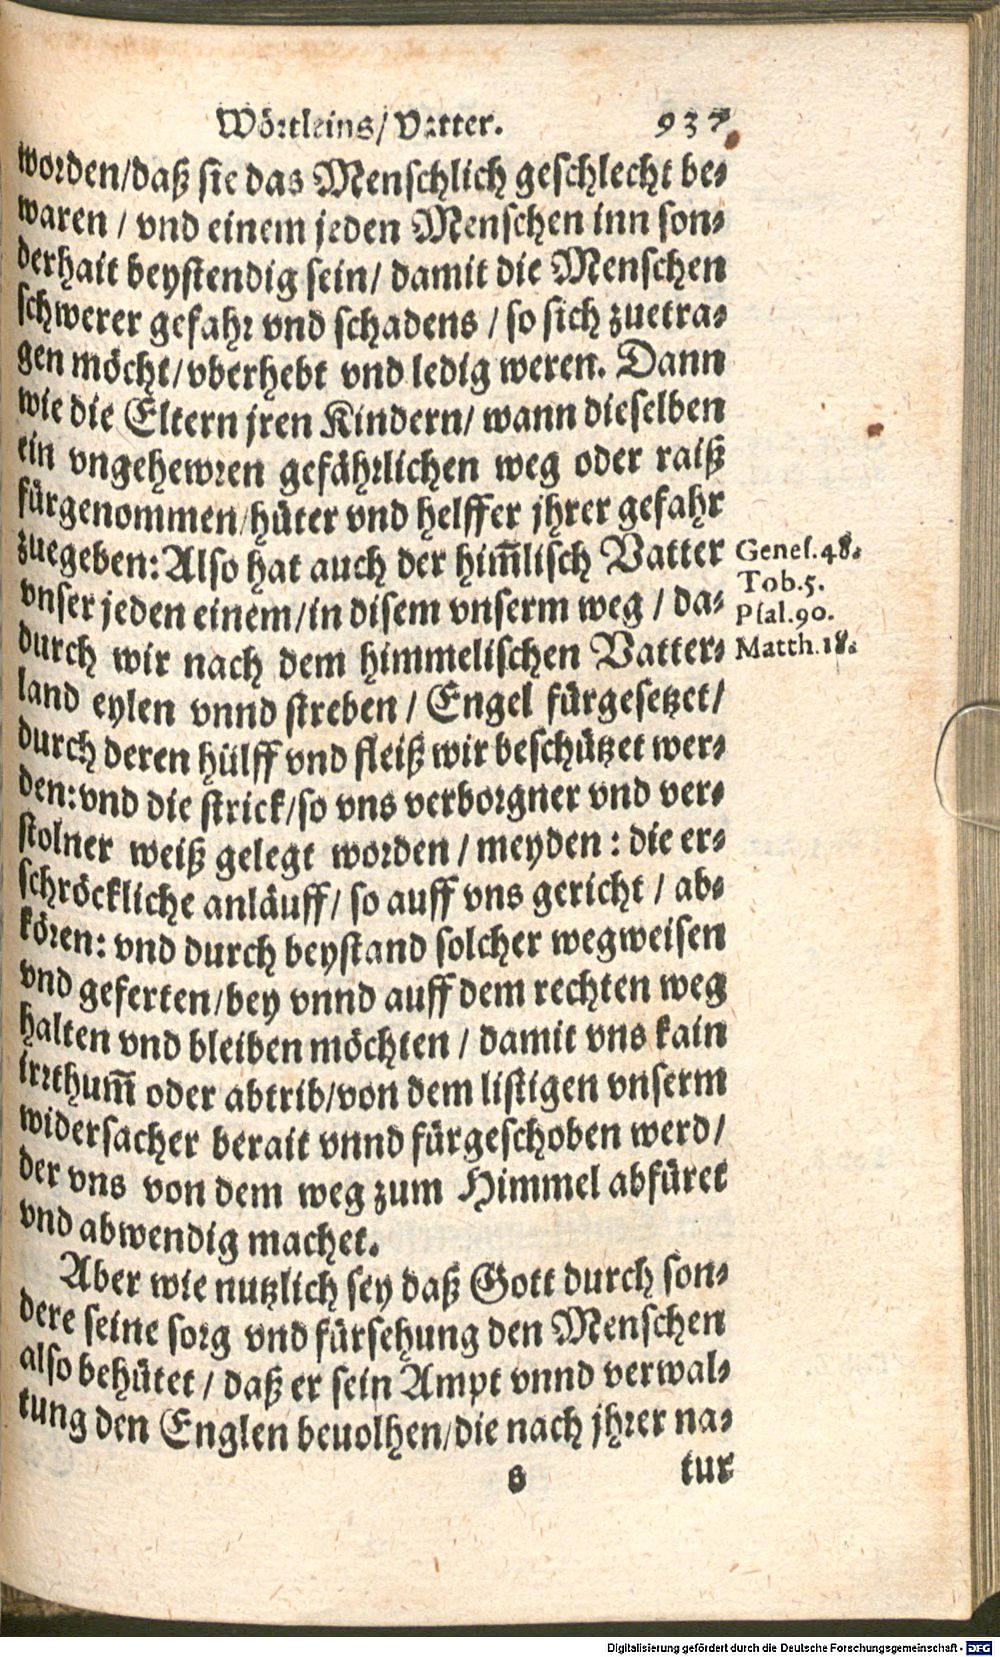 Wörtleins/ Vatter. 937
worden/daß sie das Menschlich geschlecht be-
waren / vnd einem jeden Menschen inn son-
derhait beystendig sein/ damit die Menschen
schwerer gefahr vnd schadens / so sich zuetra-
gen möcht/vberhebt vnd ledig weren. Dann
wie die Eltern jren Kindern/ wann dieselben
ein vngehewren gefährlichen weg oder raiß
fürgenommen/hüter vnd helffer jhrer gefahr
zuegeben: Also hat auch der him̃lisch Vatter
vnser jeden einem/in disem vnserm weg / da-
durch wir nach dem himmelischen Vatter-
land eylen vnnd streben / Engel fürgesetzet/
durch deren hülff vnd fleiß wir beschützet wer-
den: vnd die strick/so vns verborgner vnd ver-
stolner weiß gelegt worden / meyden : die er-
schröckliche anläuff/ so auff vns gericht / ab-
kören: vnd durch beystand solcher wegweisen
vnd geferten/bey vnnd auff dem rechten weg
halten vnd bleiben möchten / damit vns kain
irrthum̃ oder abtrib/von dem listigen vnserm
widersacher berait vnnd fürgeschoben werd/
der vns von dem weg zum Himmel abfüret
vnd abwendig machet.
Aber wie nutzlich sey daß Gott durch son-
dere seine sorg vnd fürsehung den Menschen
also behütet / daß er sein Ampt vnnd verwal-
tung den Englen beuolhen/die nach jhrer na-
s tur
Genes.48.
Tob.5.
Psal.90.
Matth.18.
Digitalisierung gefördert durch die Deutsche Forschungsgemeinschaft - DFG